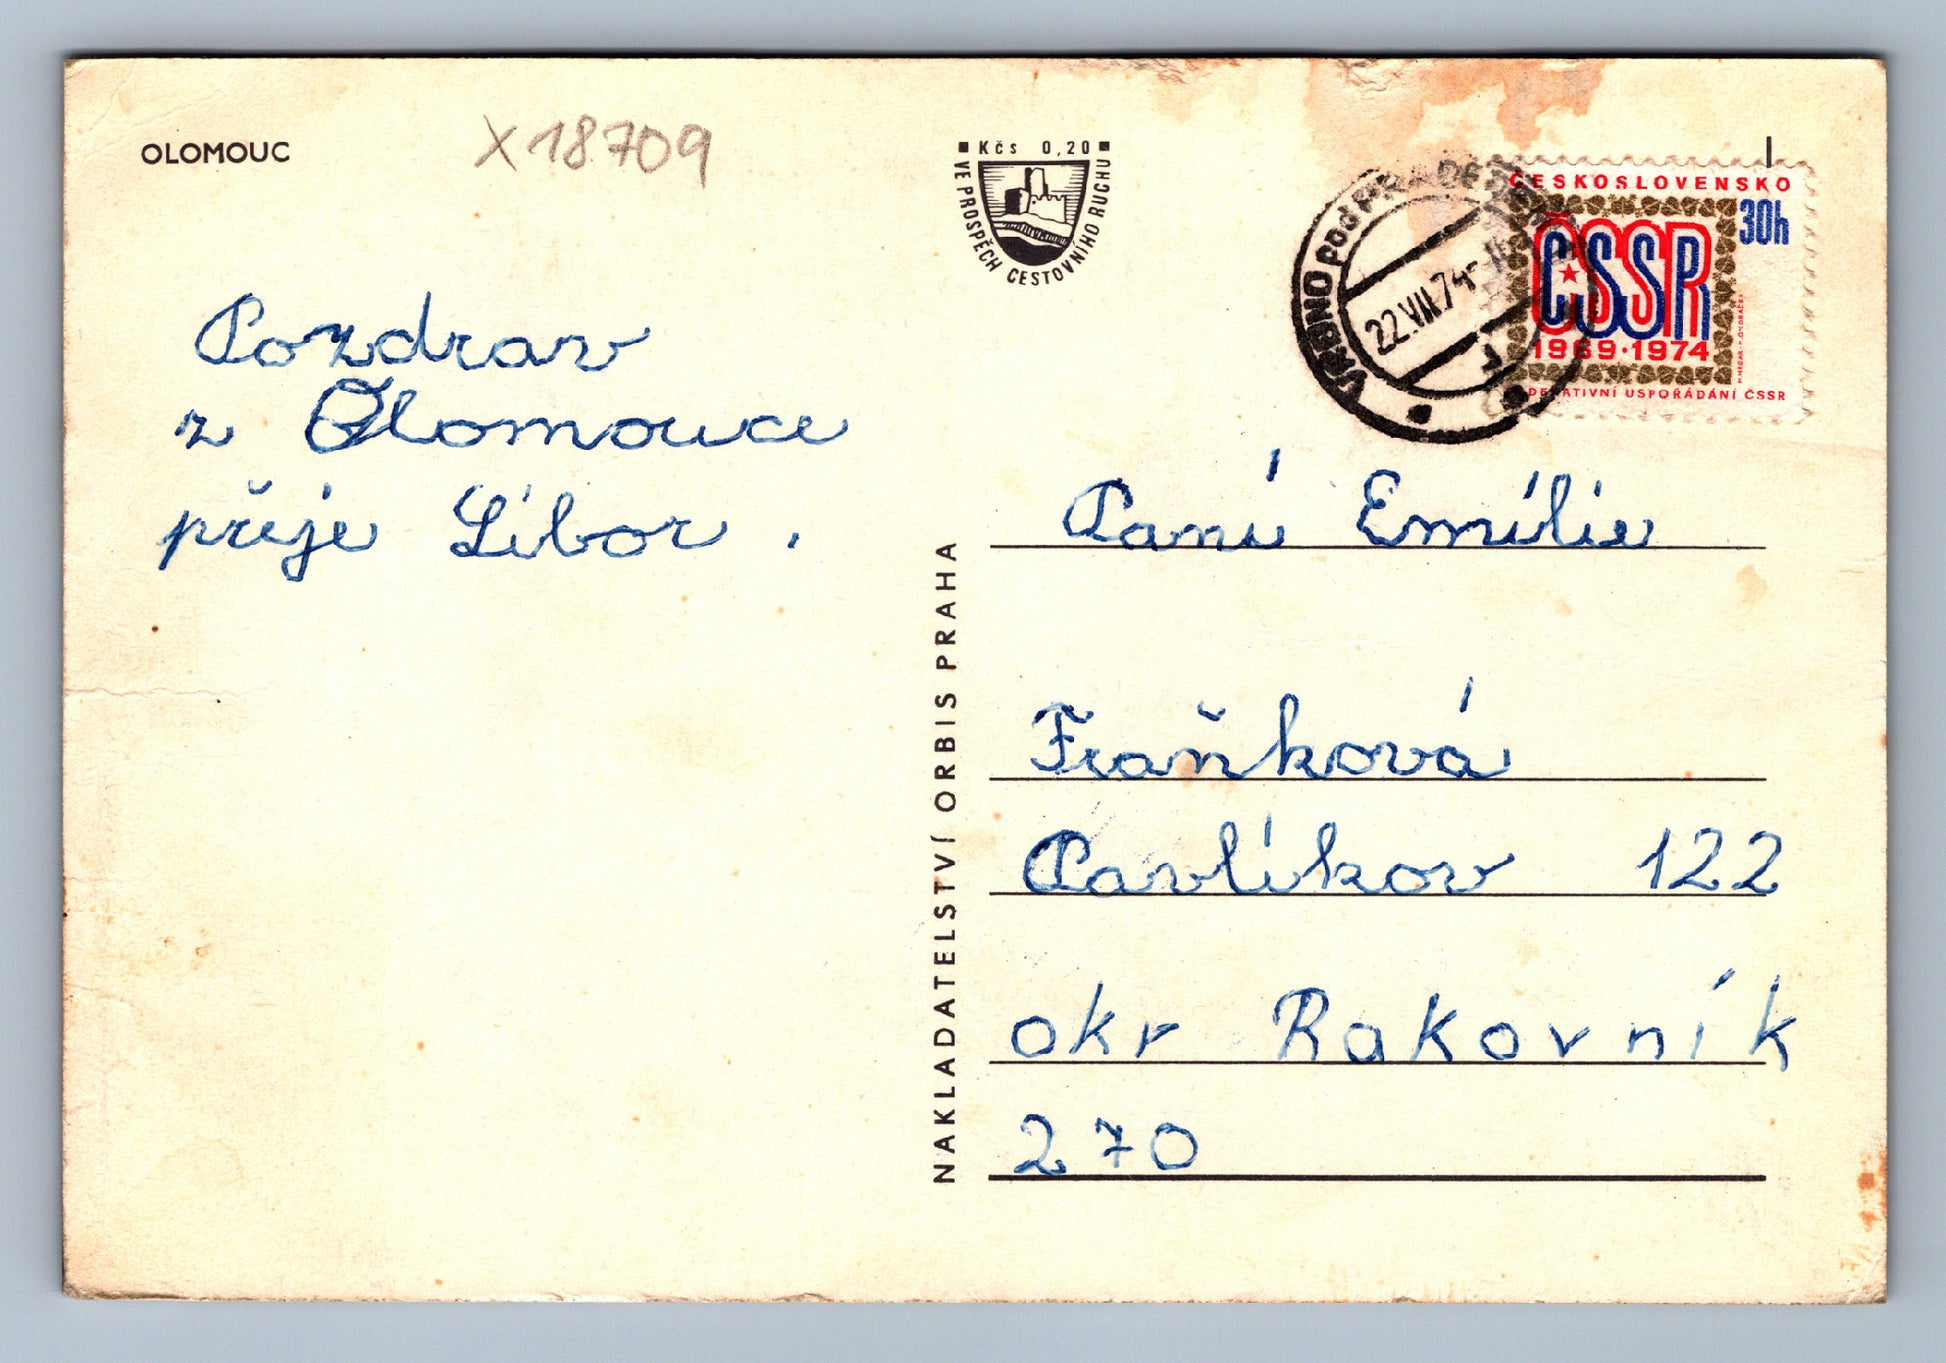 OLOMOUC
X 18709
Kčs 0,20
VE PROSPĚCH CESTOVNÍHO RUCHU
VRBNO pod PRADĚDEM
22.VIII.74
ČESKOSLOVENSKO
30h
ČSSR
1969·1974
DERATIVNÍ USPOŘÁDÁNÍ ČSSR
Pozdrav
z Olomouce
přeje Libor.
NAKLADATELSTVÍ ORBIS PRAHA
Paní Emílie
Fraňková
Pavlíkov 122
okr Rakovník
270